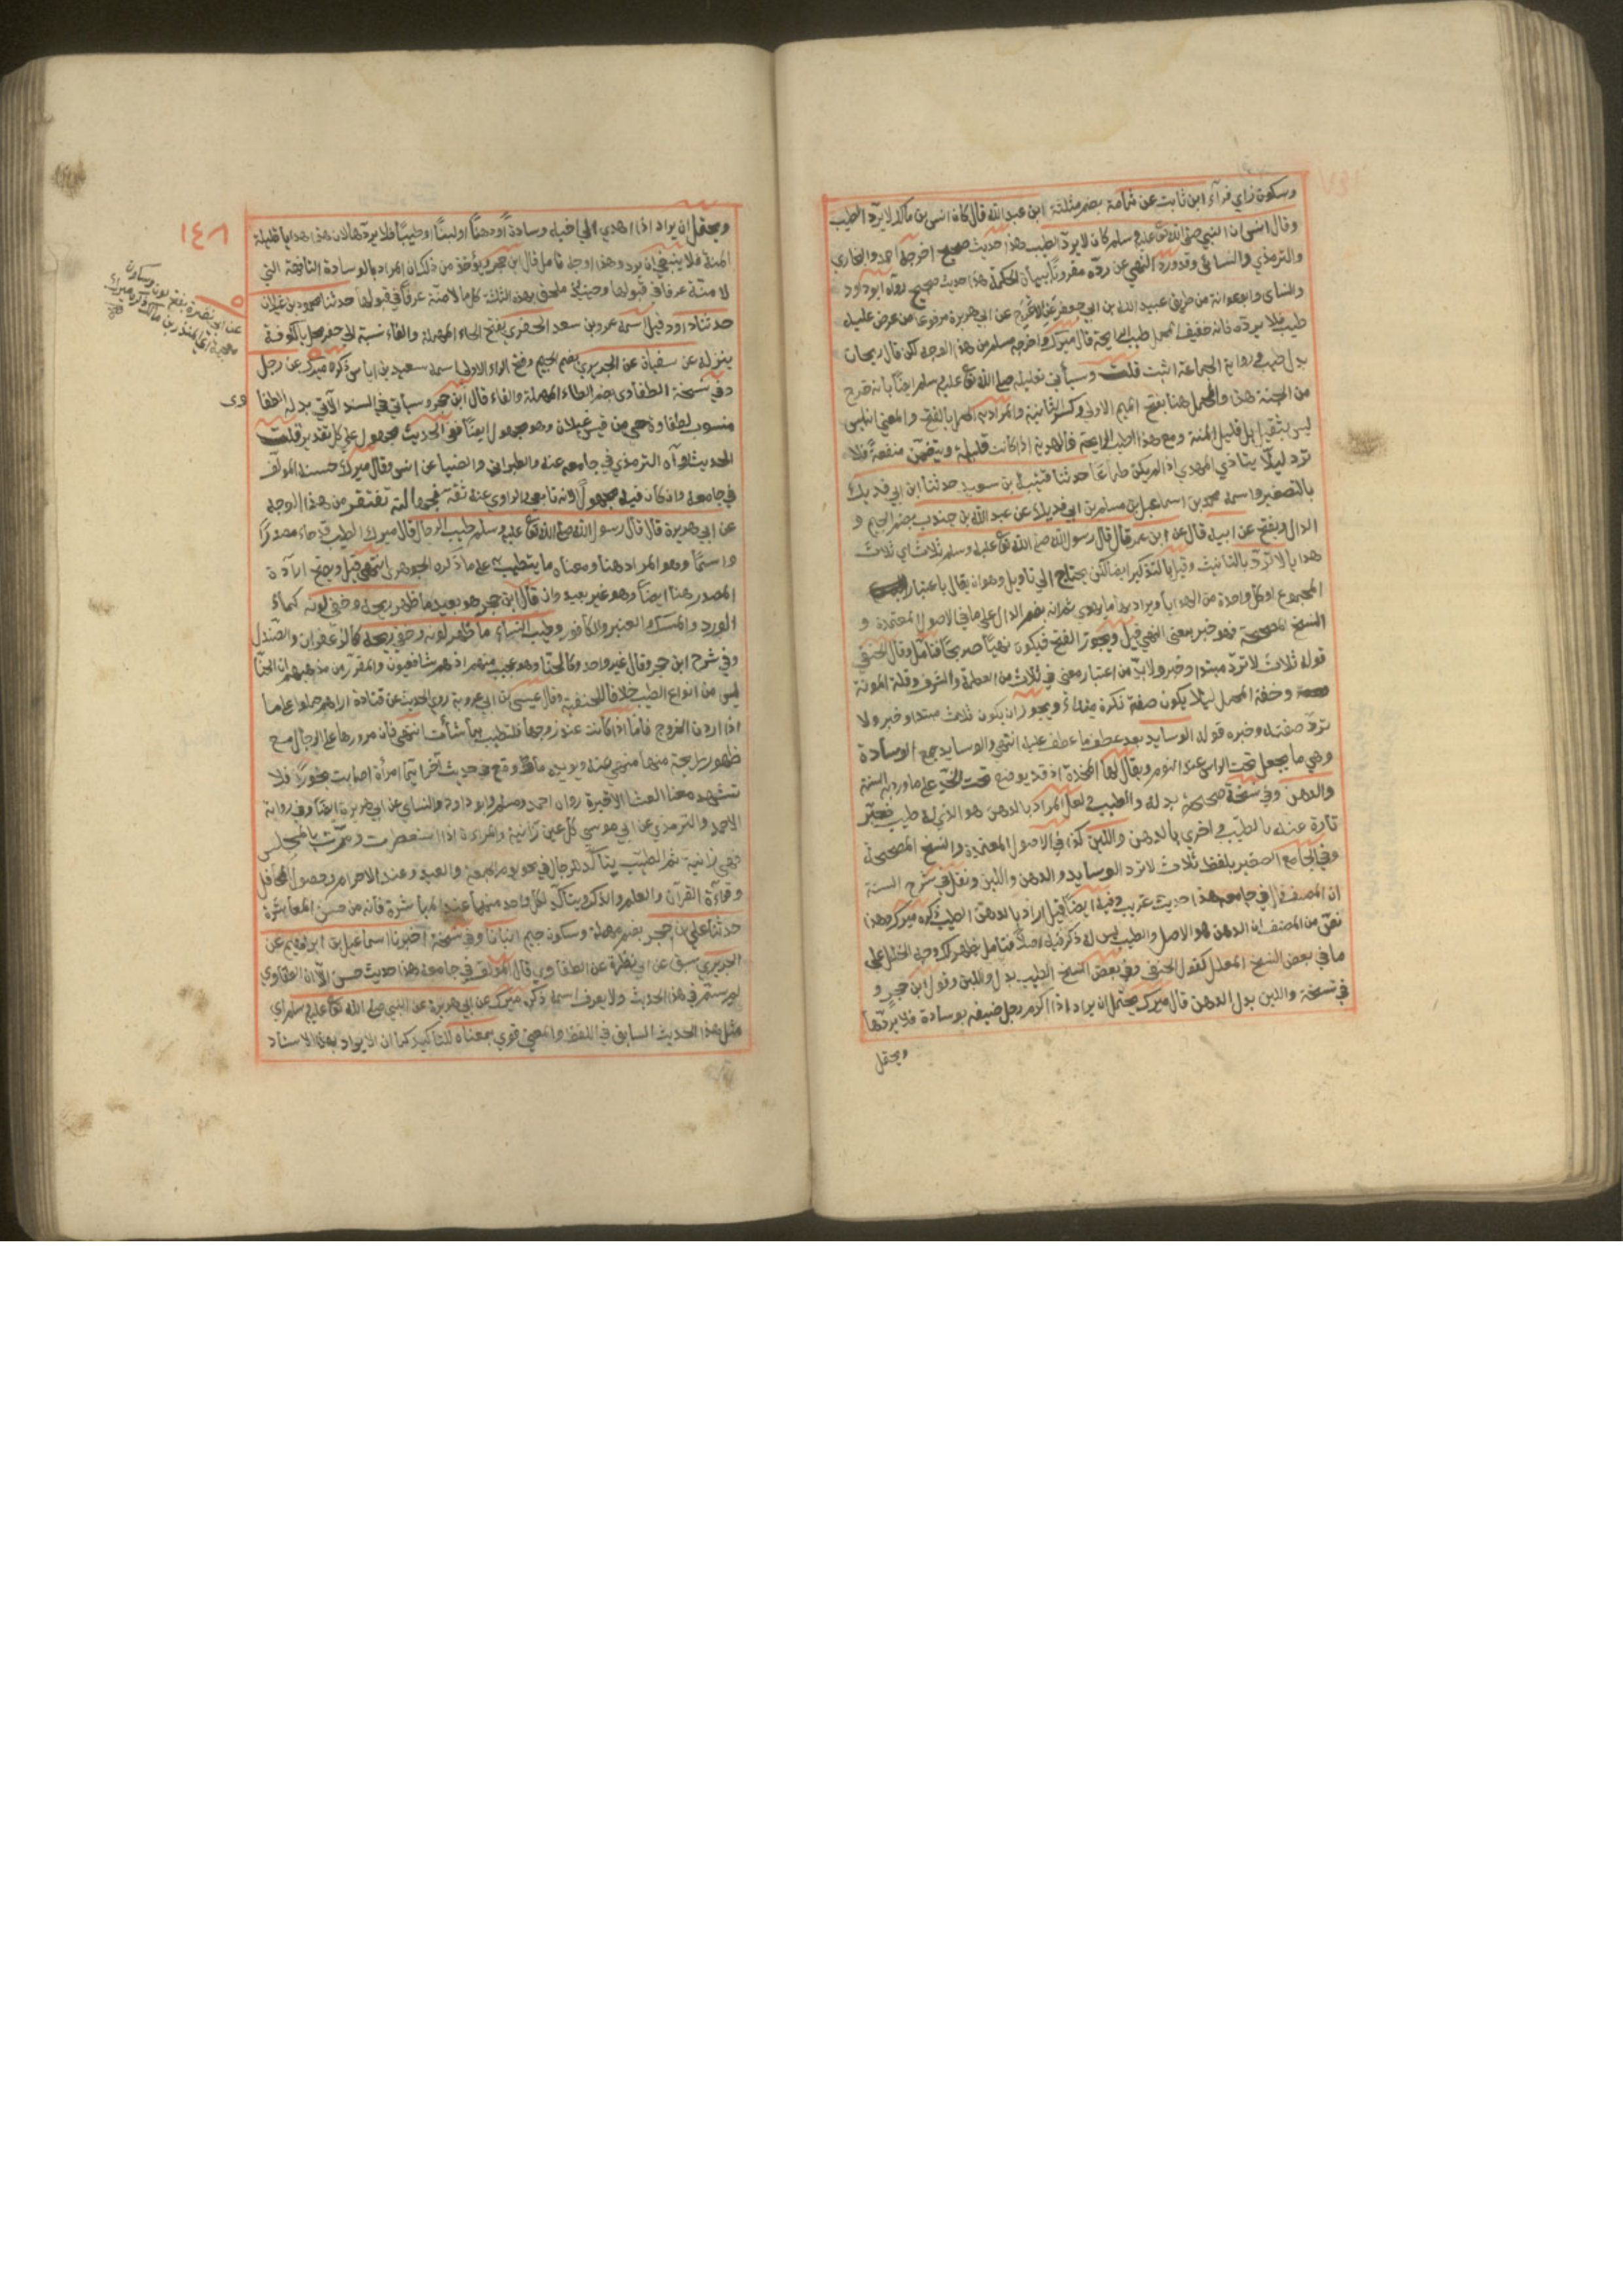 وسكون زاي فراء ابن ثابت عن ثمامة بضم مثلثة ابن عبد الله قال كان انس بن مالك لا يرد الطيب
وقال انس ان النبي صلى الله تعالى عليه وسلم كان لا يرد الطيب هذا حديث صحيح اخرجه احمد والبخاري
والترمذي والنسائي وقد ورد النهي عن رده مقرونا ببيان الحكمة في حديث صحيح رواه ابو داود
والنساى وابو عوانة من طريق عبيد الله بن ابي جعفر عن الاعرج عن ابي هريرة مرفوعا من عرض عليه
طيب فلا يرده فانه خفيف المحمل طيب الرايحة قال ميرك واخرجه مسلم من هذا الوجه لكن قال ريحان
بدل طيب ورواية الجماعة اثبت قلت وسيأتي تعليله صلى الله تعالى عليه وسلم ايضا بانه خرج
من الجنة هذا والمحمل هنا بفتح الميم الاولى وكسر الثانية والمراد به الحمل بالفتح والمعنى انه ليس
ليس بثقيل بل قليل المنة ومع هذا طيب الرايحة فالهدية اذا كانت قليلة وتتضمن منفعة فلا
ترد ليلا يتاذي المهدي اذا لم يكن طماعا حدثنا قتيبة بن سعيد حدثنا ابن ابي فديك
بالتصغير واسمه محمد بن اسماعيل بن مسلم بن ابي فديك عن عبد الله بن جندب بضم الجيم و
الدال ويفتح عن ابيه قال عن ابن عمر قال قال رسول الله صلى الله تعالى عليه وسلم ثلاث اي ثلاث
هدايا لا ترد بالتانيث وقيل بالتذكير ايضا لكن يحتاج الى تاويل وهو ان يقال باعتبار
المجموع او كل واحدة من الهدايا ويراد بها ما يهدي ثم انه بضم الدال على ما في الاصول المعتمدة و
النسخ المصححة فهو خبر بمعنى النهي قيل ويجوز الفتح فيكون نهيا صريحا فتامل وقال الحنفي
قوله ثلاث لا ترد مبتدا وخبر ولا بد من اعتبار معنى في ثلاث من العطرة والشرف وقلة المونة
وخفة المحمل ليلا يكون صفة نكرة مبتدا ويجوز ان يكون ثلاث مبتدا وخبر ولا
ترد صفته وخبره قوله الوسايد بعد عطف ما عطف عليه انتهى والوسايد جمع الوسادة
وهي ما يجعل تحت الراس عند النوم ويقال لها المخدة اذ قد يوضع تحت الخد على ما ورد به السنة
والدهن وفي نسخة صحيحة بدله والطيب ولعل المراد بالدهن هو الذي له طيب فعبر
تارة عنه بالطيب واخرى بالدهن واللبن كذا في الاصول المعتمدة والنسخ المصححة
وفي الجامع الصغير بلفظ ثلاث لا ترد الوسايد والدهن واللبن ونقل في شرح السنة
ان المصنف قال في جامعه هذا حديث غريب وفيه ايضا قيل اراد بالدهن الطيب ذكره ميرك وهذا
نص من المصنف ان الدهن هو الاصل والطيب ليس له ذكر فيه اصلا فتامل ظهر لك وجه الخلل على
ما في بعض النسخ المعدل كقول الحنفي وفي بعض النسخ الطيب بدل واللبن وقول ابن حجر و
في نسخة واللبن بدل الدهن قال ميرك يحتمل ان يراد اذا اكرم رجل ضيفه بوسادة فلا يردها
ويحتمل
١٤٨
ويحتمل ان يراد اذا اهدي الى اخيه وسادة او دهنا او لبنا او طيبا فلا يردها لان هذه هدايا قليلة
المنة فلا ينبغي ان يرد وهذا اوجه تامل قال ابن حجر ويؤخذ من ذلك ان المراد بالوسادة التافهة التي
لا منة عرفا في قبولها وحينئذ ملحق بهذه الثلثة كل ما لا منة عرفا في قبوله حدثنا محمود بن غيلان
حدثنا ابو داود قيل اسمه عمرو بن سعد الحفري بفتح الحاء المهملة والفاء نسبة الى حفر محل بالكوفة
ينزله عن سفيان عن الجريري بضم الجيم وفتح الراء الاولى اسمه سعيد بن اياس ذكره ميرك عن رجل
وفي نسخة الطفاوي بضم الطاء المهملة والفاء قال ابن حجر وسياتي في السند الآتي بدله الطفا
وى
منسوب لطفاوة حي من قيس غيلان وهو مجهول ايضا فهو الحديث مجهول على كل تقدير قلت
الحديث رواه الترمذي في جامعه عنه والطبراني والضيا عن انس وقال ميرك حسنه المولف
في جامعه وان كان فيه مجهول لانه تابعي والراوي عنه ثقة فجهالته تغتفر من هذا الوجه
عن ابي هريرة قال قال رسول الله صلى الله تعالى عليه وسلم طيب الرجال قال ميرك الطيب قد جاء مصدرا
واسما وهو المراد هنا ومعناه ما يتطيب به على ما ذكره الجوهري انتهى قيل ويصح ارادة
المصدر هنا ايضا وهو غير بعيد وان قال ابن حجر هو بعيد ما ظهر ريحه وخفي لونه كماء
الورد والمسك والعنبر والكافور وطيب النساء ما ظهر لونه وخفي ريحه كالزعفران والصندل
وفي شرح ابن حجر وقال غير واحد وكالحنا وهو عجيب منهم اذ هم شافعيون والمقرر من مذهبهم ان الحنا
ليس من انواع الطيب خلافا للحنفية وقال عيسى بن ابي عروبة روى الحديث عن قتادة اراهم حملوا على ما
اذا اردن الخروج فاما اذا كانت عند زوجها فلتطيب بما شأت انتهى فان مرورها على الرجال مع
ظهور رايحة منها منهي عنه ويويده ما وقع في حديث آخر ايما امرأة اصابت بخورا فلا
تشهد معنا العشا الاخيرة رواه احمد ومسلم وابو داود والنساي عن ابي هريرة ايضا وفي رواية
لاحمد والترمذي عن ابي موسى كل عين زانية والمراءة اذا استعطرت ومرت بالمجلس
فهي زانية ثم الطيب يتأكد للرجال في نحو يوم الجمعة والعيد وعند الاحرام وحضور المحافل
وقراءة القرآن والعلم والذكر ويتأكد لكل واحد منهما عند المباشرة فانه من حسن المعاشرة
حدثنا علي بن حجر بضم مهملة وسكون جيم انبانا وفي نسخة اخبرنا اسماعيل بن ابراهيم عن
الجريري سبق عن ابي نظرة عن الطفاوي قال المؤلف في جامعه هذا حديث حسن الا ان الطفاوي
لم يسم في هذا الحديث ولا يعرف اسمه ذكره ميرك عن ابي هريرة عن النبي صلى الله تعالى عليه وسلم اي
مثل هذا الحديث السابق في اللفظ والمعنى قوي بمعناه للتاكيد كما ان الايراد بهذا الاسناد
عن ابي نضرة بفتح نون وسكون
معجمة اي المنذر بن مالك ذكره ميرك
صح